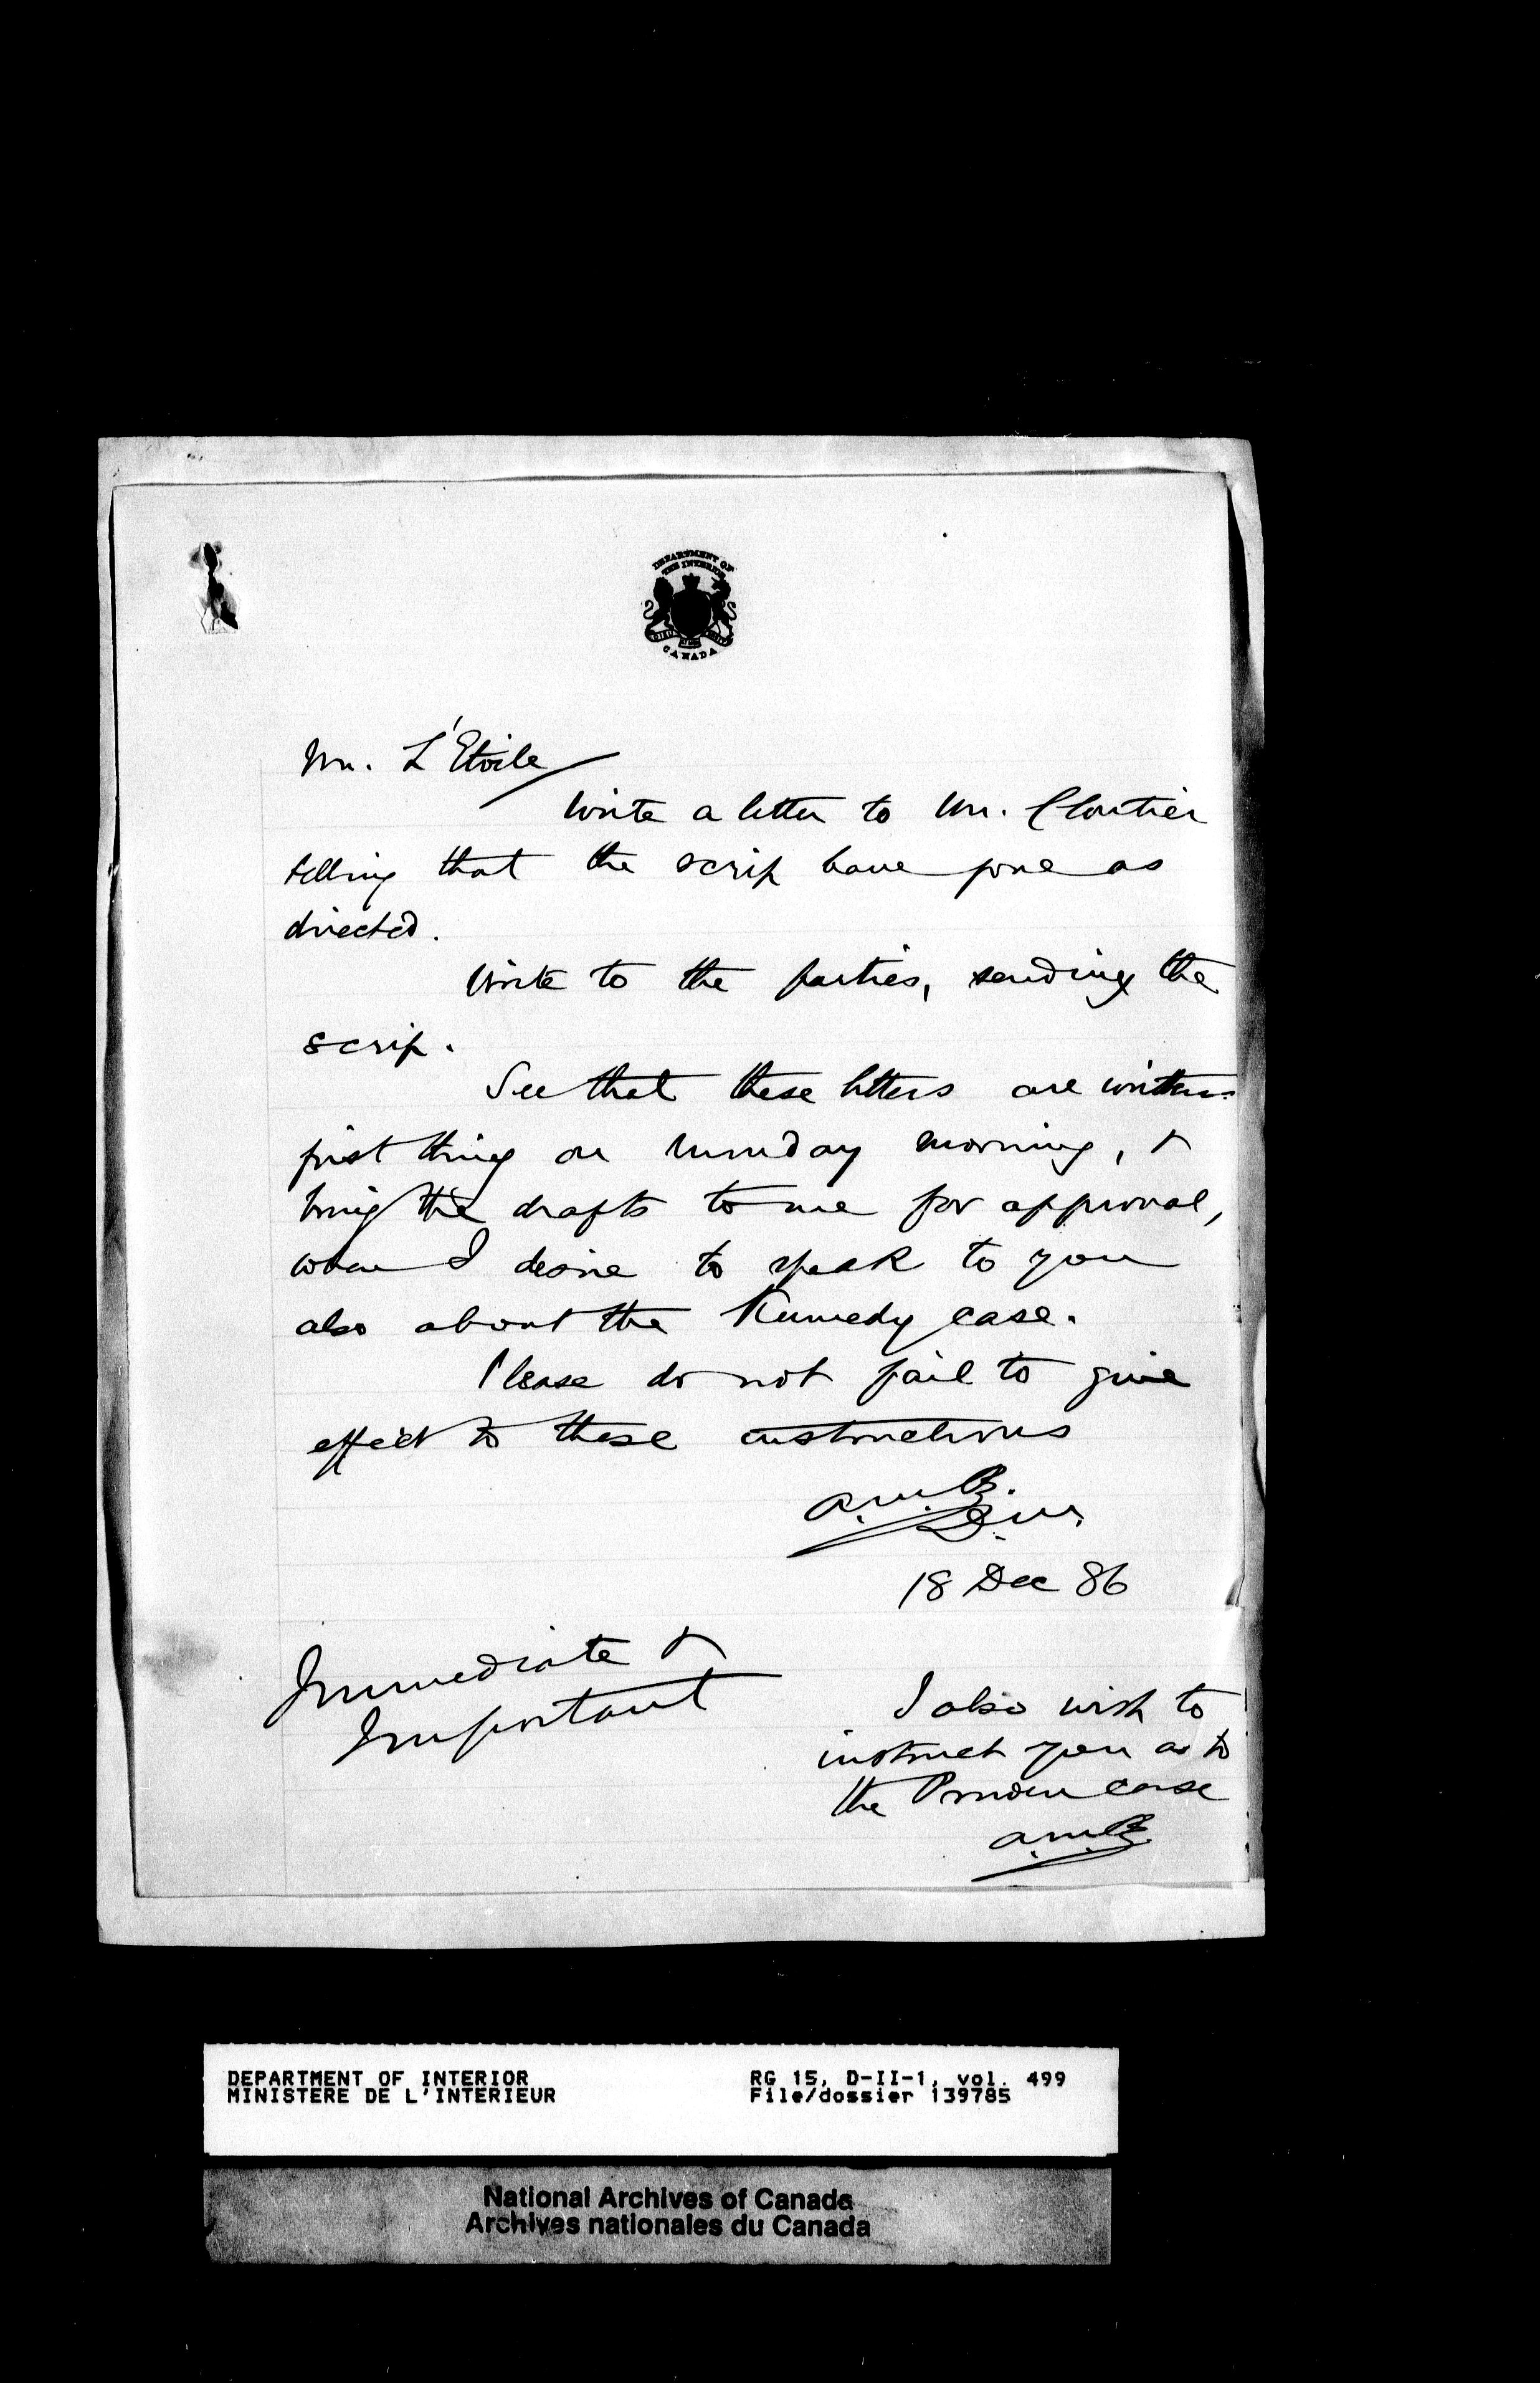 DEPARTMENT OF
THE INTERIOR
CANADA
Mr. L'Etoile
Write a letter to Mr. Cloutier
telling that the scrip have gone as
directed.
Write to the parties, sending the
scrip.
See that these letters are written
first thing on Monday morning, &
bring the drafts to me for approval,
when I desire to speak to you
also about the Kennedy case.
Please do not fail to give
effect to these instructions
A.M.B.
D.M.
18 Dec 86
Immediate &
Important
I also wish to
instruct you as to
the Pruden case
A.M.B.
DEPARTMENT OF INTERIOR
MINISTERE DE L'INTERIEUR
RG 15, D-II-1, vol. 499
File/dossier 139785
National Archives of Canada
Archives nationales du Canada